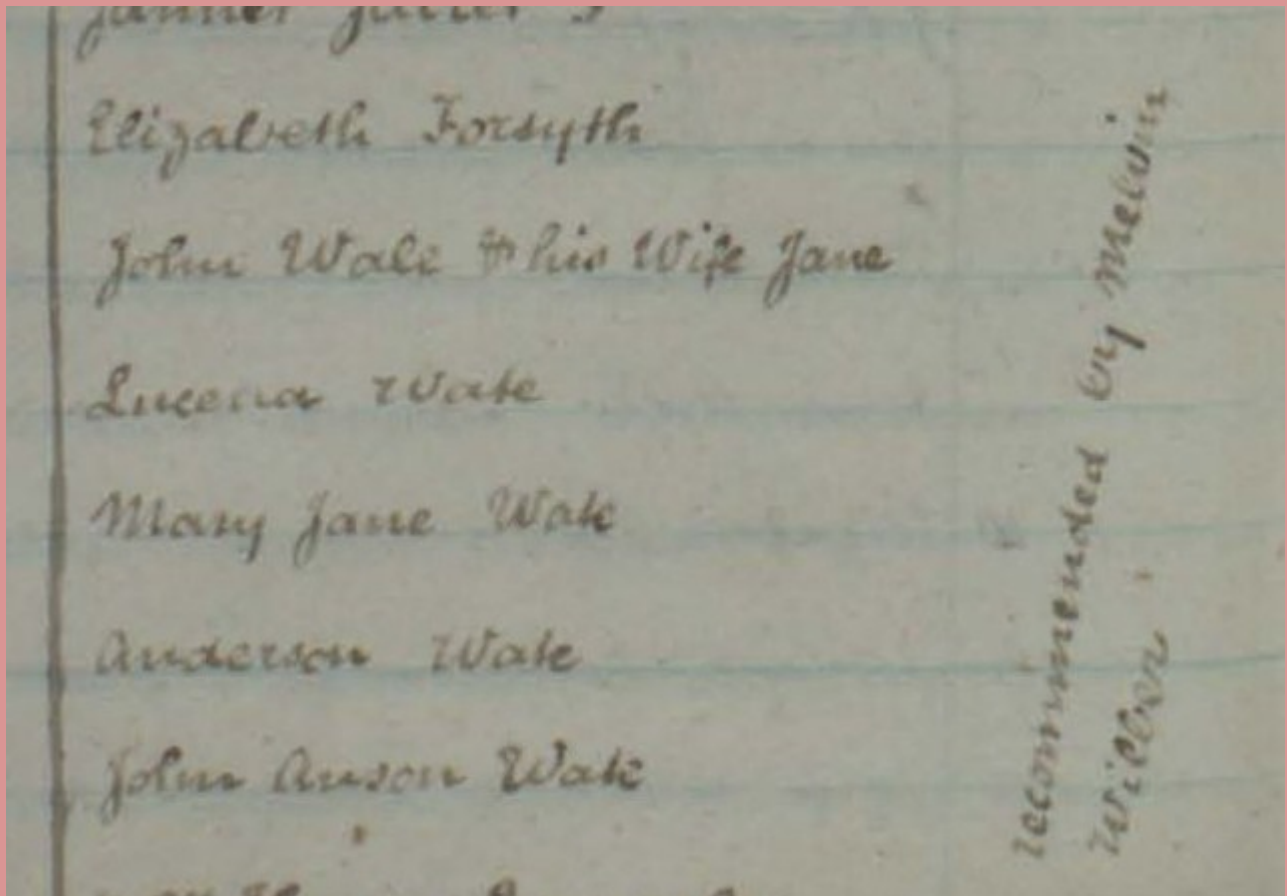 Elizabeth Forsyth
John Wale & his Wife Jane
Lucena Wate
Mary Jane Wate
Anderson Wate
John Anson Wate
recommended by Melvin
Wilbur